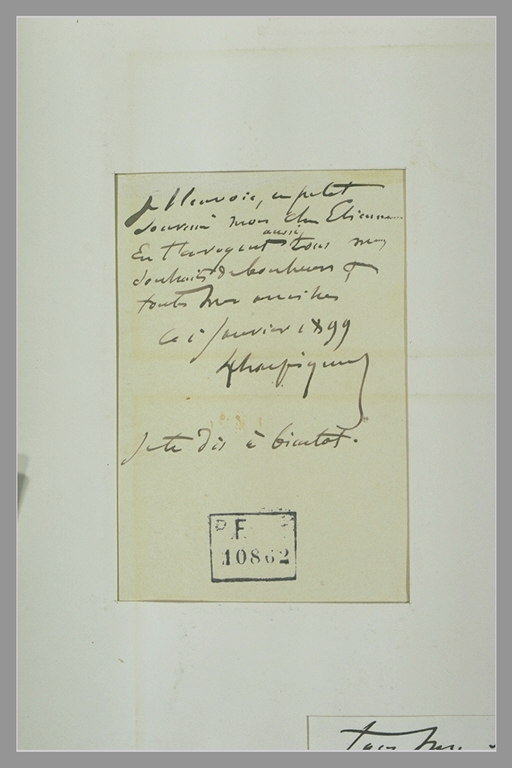 Je t'envoie, un petit
souvenir mon cher Etienne
En t'envoyant aussi tous mes
souhaits de bonheurs &
toutes mes amitiés
le 1 Janvier 1899
HHarpignies
Je te dis à bientôt.
P F
10862